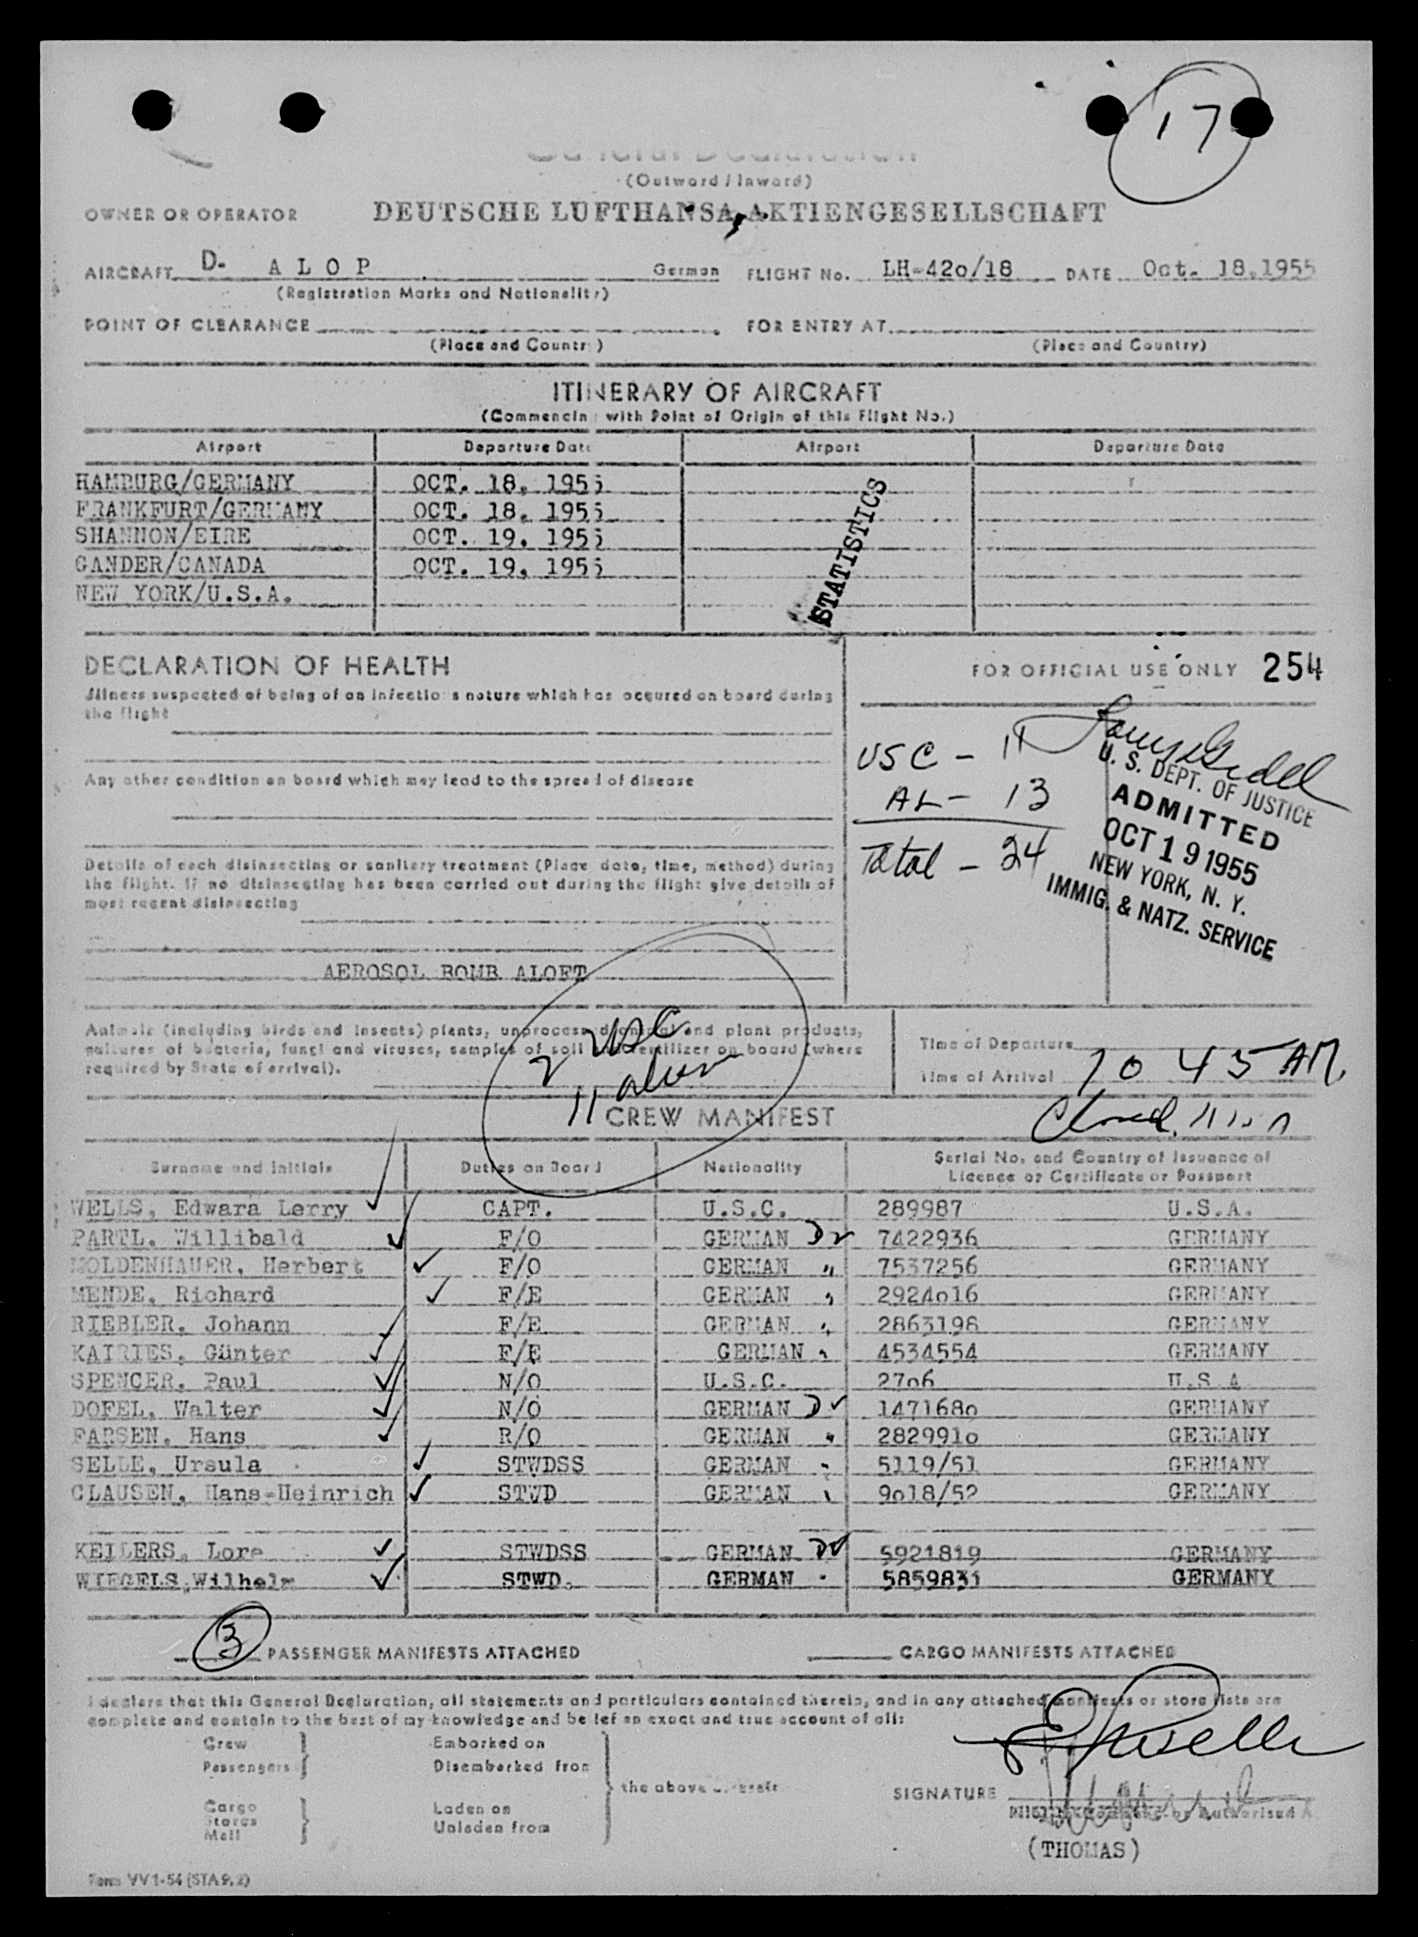 17
General Declaration
(Outward / Inward)
OWNER OR OPERATOR DEUTSCHE LUFTHANSA AKTIENGESELLSCHAFT
AIRCRAFT D- A L O P German FLIGHT No. LH-42o/18 DATE Oct. 18.1955
(Registration Marks and Nationality)
POINT OF CLEARANCE FOR ENTRY AT
(Place and Country) (Place and Country)
ITINERARY OF AIRCRAFT
(Commencing with Point of Origin of this Flight No.)
Airport Departure Date Airport Departure Date
HAMBURG/GERMANY OCT. 18. 1955
FRANKFURT/GERMANY OCT. 18. 1955
SHANNON/EIRE OCT. 19. 1955
GANDER/CANADA OCT. 19. 1955
NEW YORK/U.S.A.
STATISTICS
DECLARATION OF HEALTH
Illness suspected of being of an infectious nature which has occured on board during
the flight
Any other condition on board which may lead to the spread of disease
Details of each disinsecting or sanitary treatment (Place date, time, method) during
the flight. If no disinsecting has been carried out during the flight give details of
most recent disinsecting
AEROSOL BOMB ALOFT
FOR OFFICIAL USE ONLY 254
USC - 11
AL - 13
Total - 24
U. S. DEPT. OF JUSTICE
ADMITTED
OCT 19 1955
NEW YORK, N. Y.
IMMIG. & NATZ. SERVICE
Animals (including birds and insects) plants, unprocessed animal and plant products,
cultures of bacteria, fungi and viruses, samples of soil and fertilizer on board (where
required by State of arrival).
2 USC
11 alien
Time of Departure
Time of Arrival 10 45 AM
Closed.
CREW MANIFEST
Surname and Initials Duties on Board Nationality Serial No. and Country of Issuance of
Licence or Certificate or Passport
WELLS, Edwara Lerry CAPT. U.S.C. 289987 U.S.A.
PARTL. Willibald F/O GERMAN 7422936 GERMANY
MOLDENHAUER, Herbert F/O GERMAN " 7537256 GERMANY
MENDE, Richard F/E GERMAN " 2924o16 GERMANY
RIEBLER, Johann F/E GERMAN " 2863198 GERMANY
KAIRIES, Günter F/E GERMAN " 4534554 GERMANY
SPENCER, Paul N/O U.S.C. 27o6 U.S.A
DOFEL, Walter N/O GERMAN 147168o GERMANY
FARSEN, Hans R/O GERMAN " 282991o GERMANY
SELLE, Ursula STWDSS GERMAN " 5119/51 GERMANY
CLAUSEN, Hans-Heinrich STWD GERMAN " 9o18/52 GERMANY
KEILERS, Lore STWDSS GERMAN 5921819 GERMANY
WIEGELS,Wilhelm STWD. GERMAN " 5859831 GERMANY
3 PASSENGER MANIFESTS ATTACHED CARGO MANIFESTS ATTACHED
I declare that this General Declaration, all statements and particulars contained therein, and in any attached manifests or store lists are
complete and contain to the best of my knowledge and belief an exact and true account of all:
Crew Embarked on
Passengers Disembarked from
the above aircraft
Cargo Laden on
Stores Unladen from
Mail
SIGNATURE
(THOMAS)
Form VV 1-54 (STA 9.2)